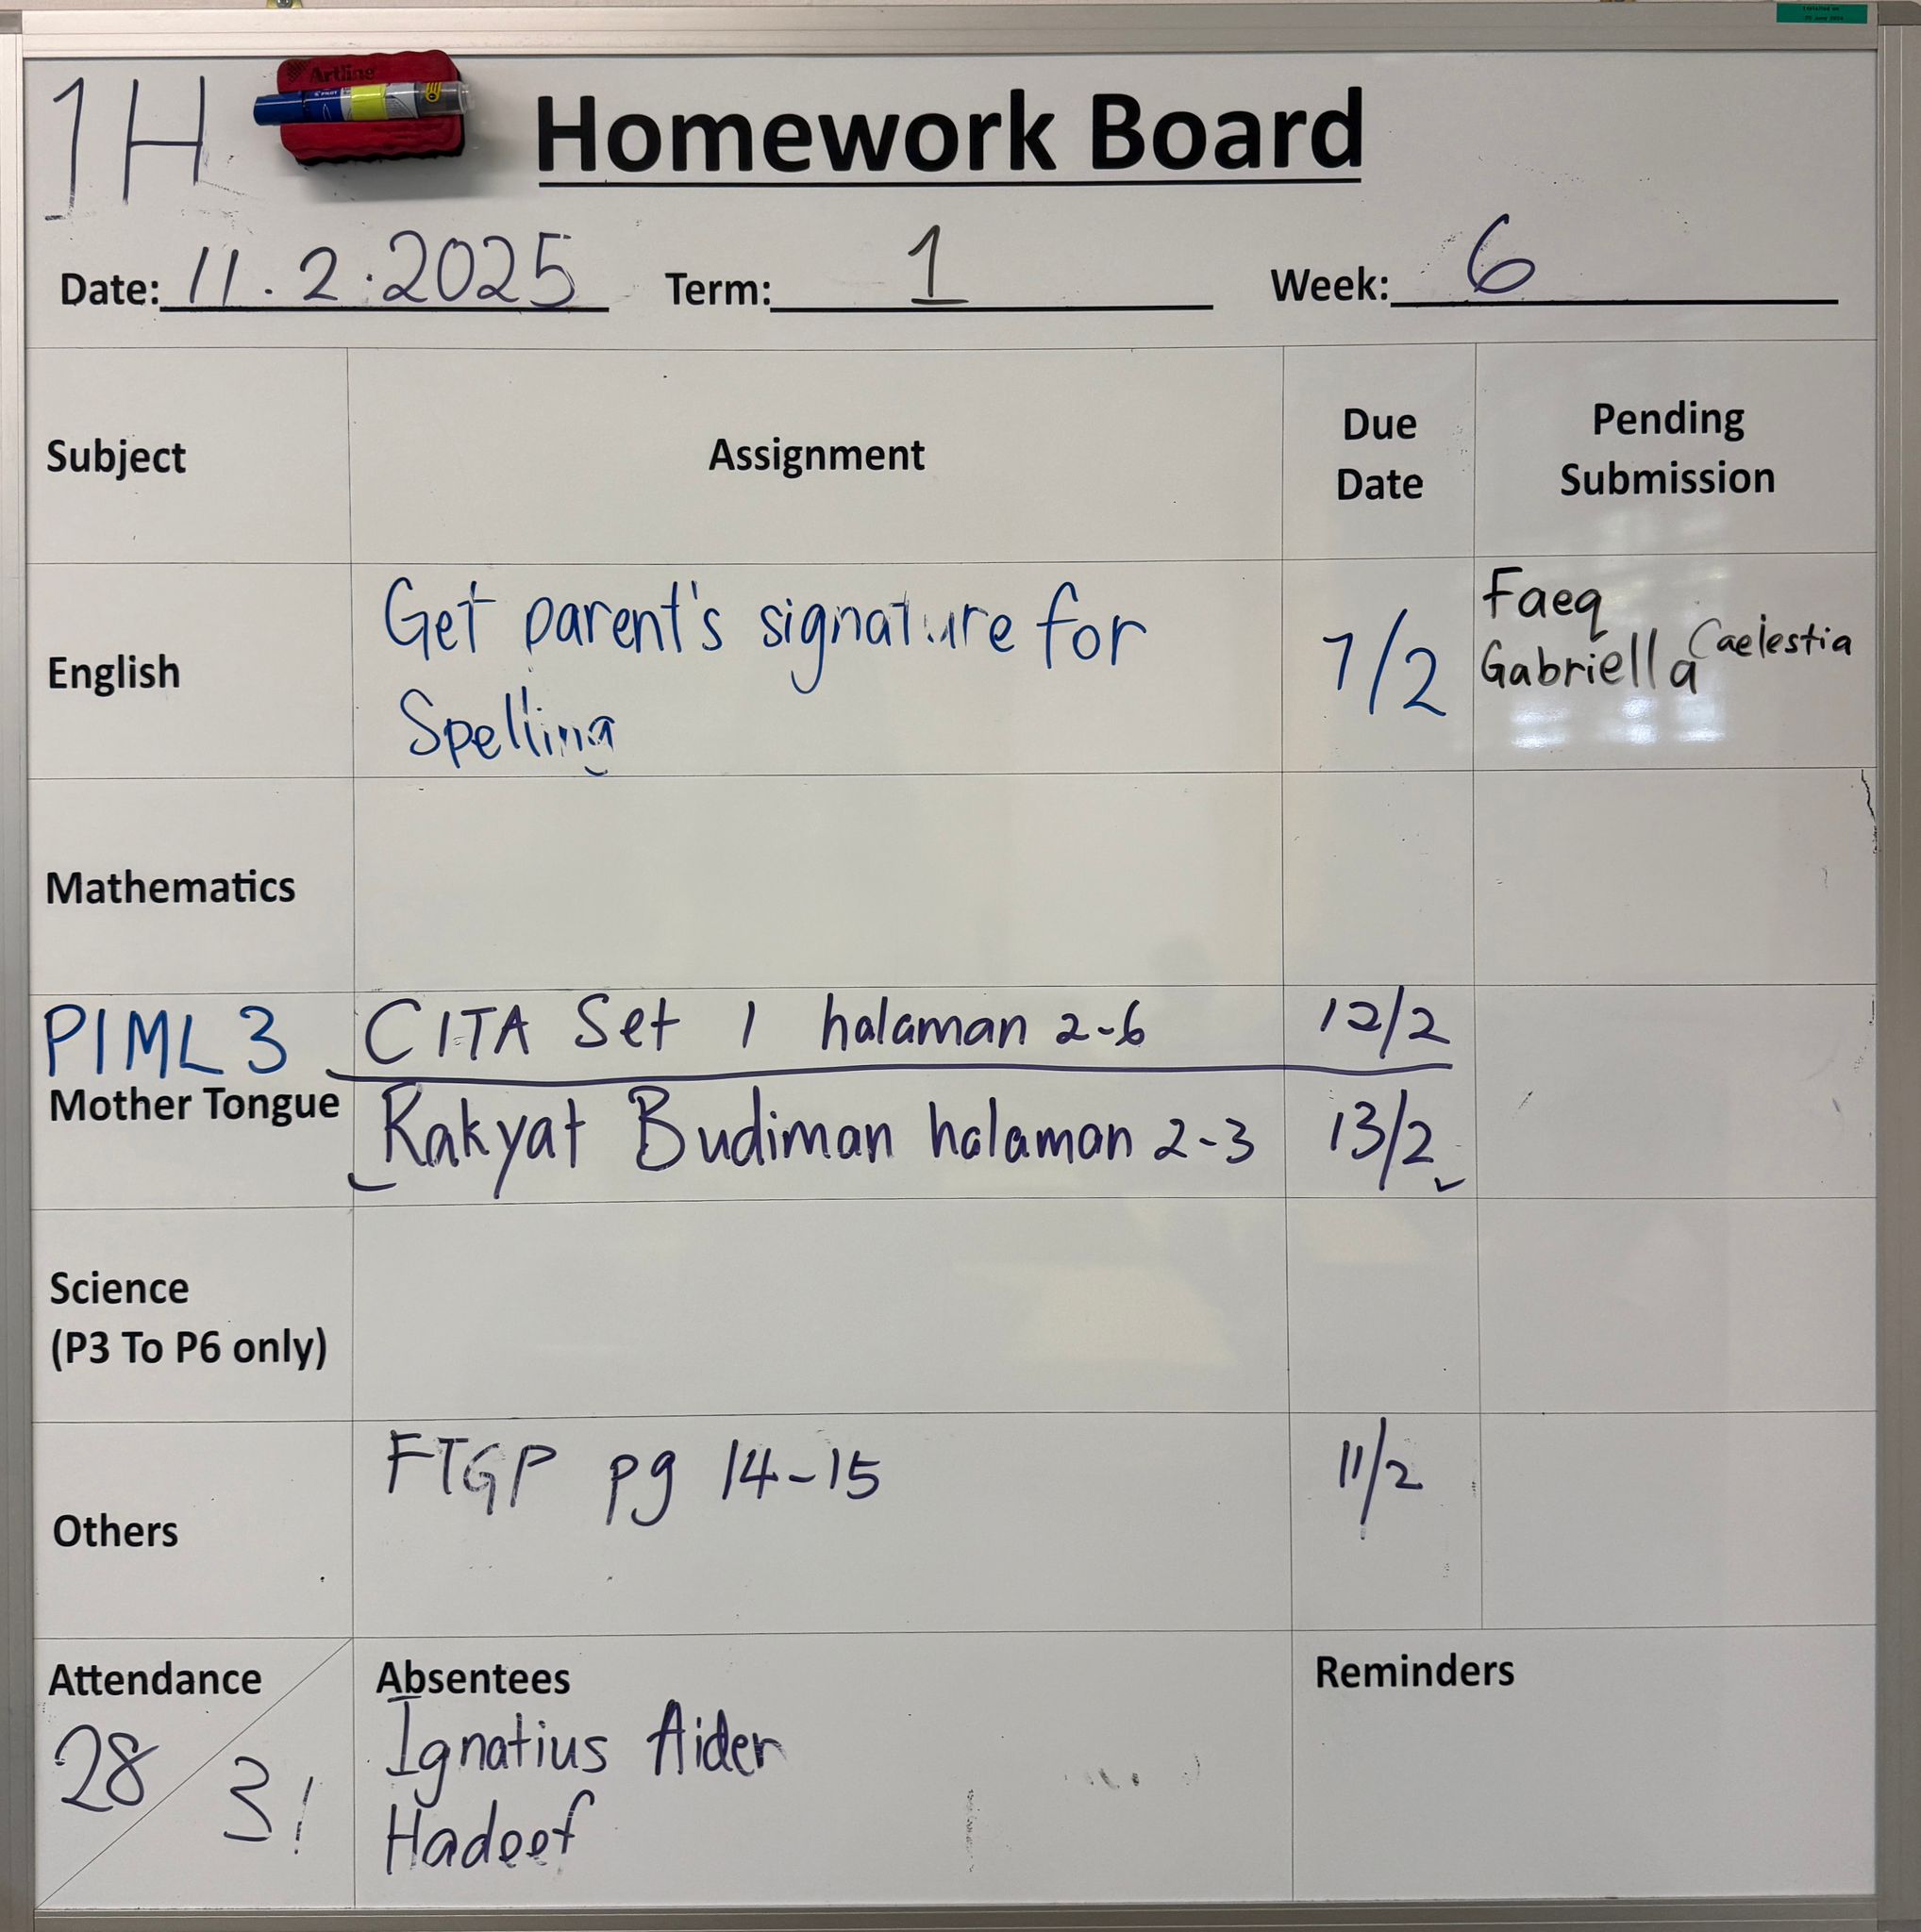 1H
Artline
PILOT
Homework Board
Date: 11.2.2025 Term: 1 Week: 6
Subject Assignment Due Date Pending Submission
English
Get parent's signature for
Spelling
7/2
Faeq
Gabriella Caelestia
Mathematics
PIML 3
Mother Tongue
CITA Set 1 halaman 2-6 12/2
Rakyat Budiman halaman 2-3 13/2
Science
(P3 To P6 only)
Others
FTGP pg 14-15 11/2
Attendance
28 31
Absentees
Ignatius Aider
Hadeef
Reminders